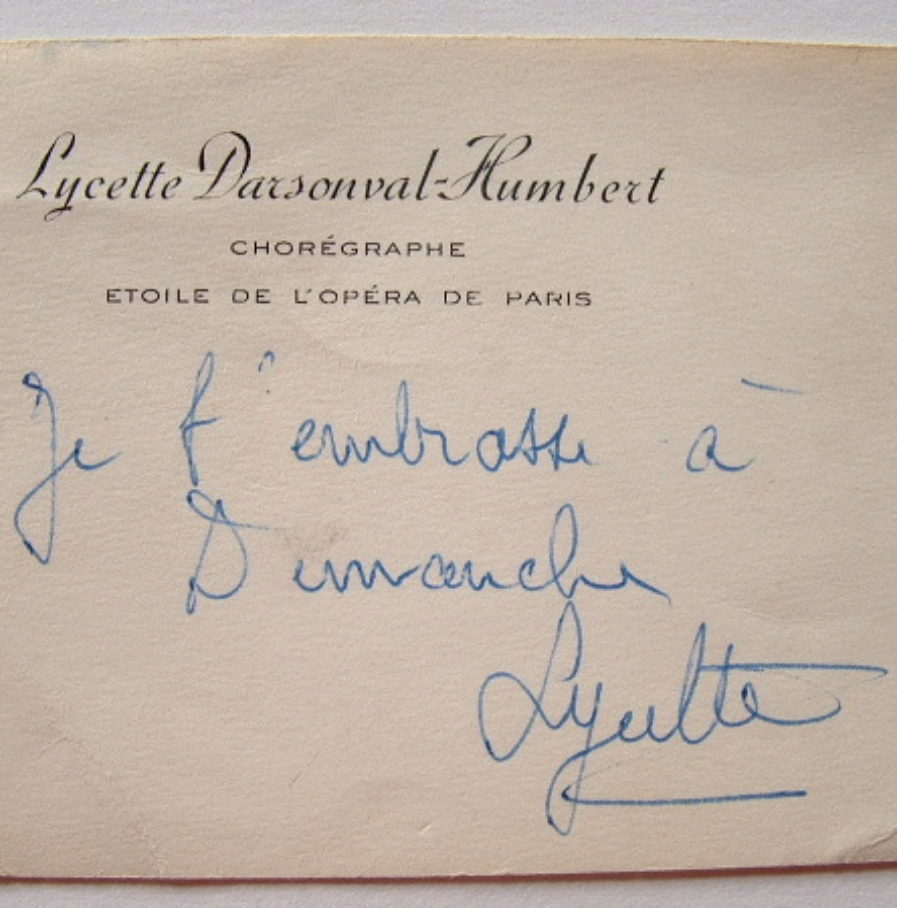 Lycette Darsonval-Humbert
CHORÉGRAPHE
ETOILE DE L'OPÉRA DE PARIS
Je t'embrasse à
Dimanche
Lycette